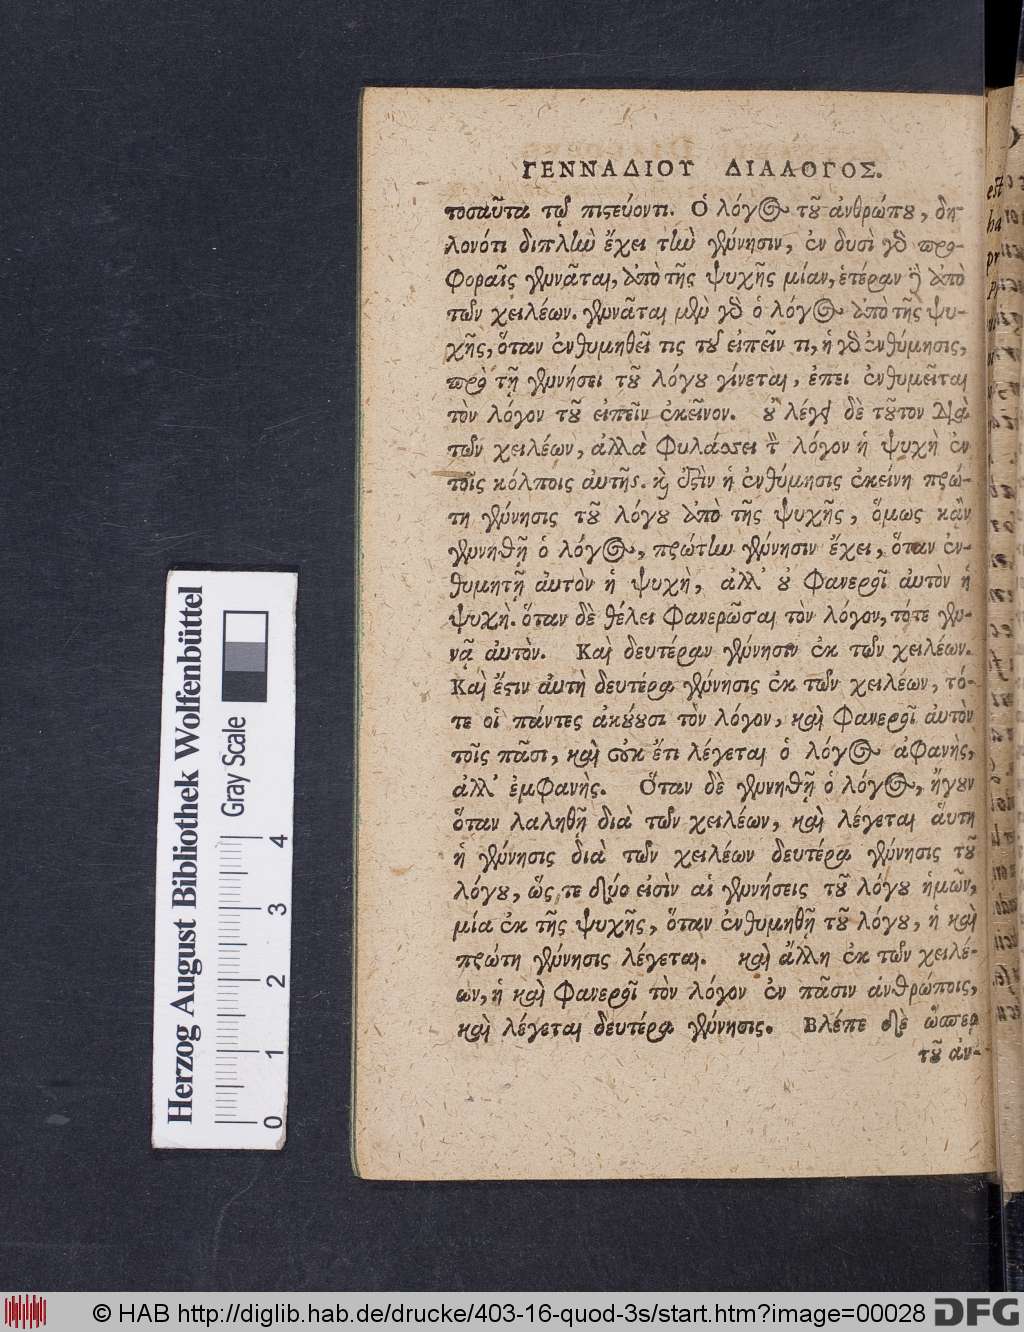 ΓΕΝΝΑΔΙΟΥ ΔΙΑΛΟΓΟΣ.
τοσαῦτα τῷ πιστεύοντι. Ὁ λόγος τοῦ ἀνθρώπου, δη-
λονότι διπλὴν ἔχει τὴν γέννησιν, ἐν δυσὶ γὰρ προ-
φοραῖς γεννᾶται, ἀπὸ τῆς ψυχῆς μίαν, ἑτέραν δὲ ἀπὸ
τῶν χειλέων. γεννᾶται μὲν γὰρ ὁ λόγος ἀπὸ τῆς ψυ-
χῆς, ὅταν ἐνθυμηθεῖ τις τοῦ εἰπεῖν τι, ἡ γὰρ ἐνθύμησις,
πρὸ τῇ γεννήσει τοῦ λόγου γίνεται, ἐπεὶ ἐνθυμεῖται
τὸν λόγον τοῦ εἰπεῖν ἐκεῖνον. οὐ λέγει δὲ τοῦτον διὰ
τῶν χειλέων, ἀλλὰ φυλάσσει τὸν λόγον ἡ ψυχὴ ἐν
τοῖς κόλποις αὐτῆς. καὶ ἐστὶν ἡ ἐνθύμησις ἐκείνη πρώ-
τη γέννησις τοῦ λόγου ἀπὸ τῆς ψυχῆς, ὅμως κἂν
γεννηθῇ ὁ λόγος, πρώτην γέννησιν ἔχει, ὅταν ἐν-
θυμητῇ αὐτὸν ἡ ψυχὴ, ἀλλ' οὐ φανεροῖ αὐτὸν ἡ
ψυχὴ. ὅταν δὲ θέλει φανερῶσαι τὸν λόγον, τότε γεν-
νᾷ αὐτὸν. Καὶ δευτέραν γέννησιν ἐκ τῶν χειλέων.
Καὶ ἔστιν αὐτὴ δευτέρα γέννησις ἐκ τῶν χειλέων, τό-
τε οἱ πάντες ἀκούουσι τὸν λόγον, καὶ φανεροῖ αὐτὸν
τοῖς πᾶσι, καὶ οὐκ ἔτι λέγεται ὁ λόγος ἀφανὴς,
ἀλλ' ἐμφανὴς. Ὅταν δὲ γεννηθῇ ὁ λόγος, ἤγουν
ὅταν λαληθῇ διὰ τῶν χειλέων, καὶ λέγεται αὕτη
ἡ γέννησις διὰ τῶν χειλέων δευτέρα γέννησις τοῦ
λόγου, ὥς τε δύο εἰσὶν αἱ γεννήσεις τοῦ λόγου ἡμῶν,
μία ἐκ τῆς ψυχῆς, ὅταν ἐνθυμηθῇ τοῦ λόγου, ἡ καὶ
πρώτη γέννησις λέγεται. καὶ ἄλλη ἐκ τῶν χειλέ-
ων, ἡ καὶ φανεροῖ τὸν λόγον ἐν πᾶσιν ἀνθρώποις,
καὶ λέγεται δευτέρα γέννησις. Βλέπε δὲ ὥσπερ
τοῦ ἀν-
Herzog August Bibliothek Wolfenbüttel
Gray Scale
0 1 2 3 4
© HAB http://diglib.hab.de/drucke/403-16-quod-3s/start.htm?image=00028
DFG